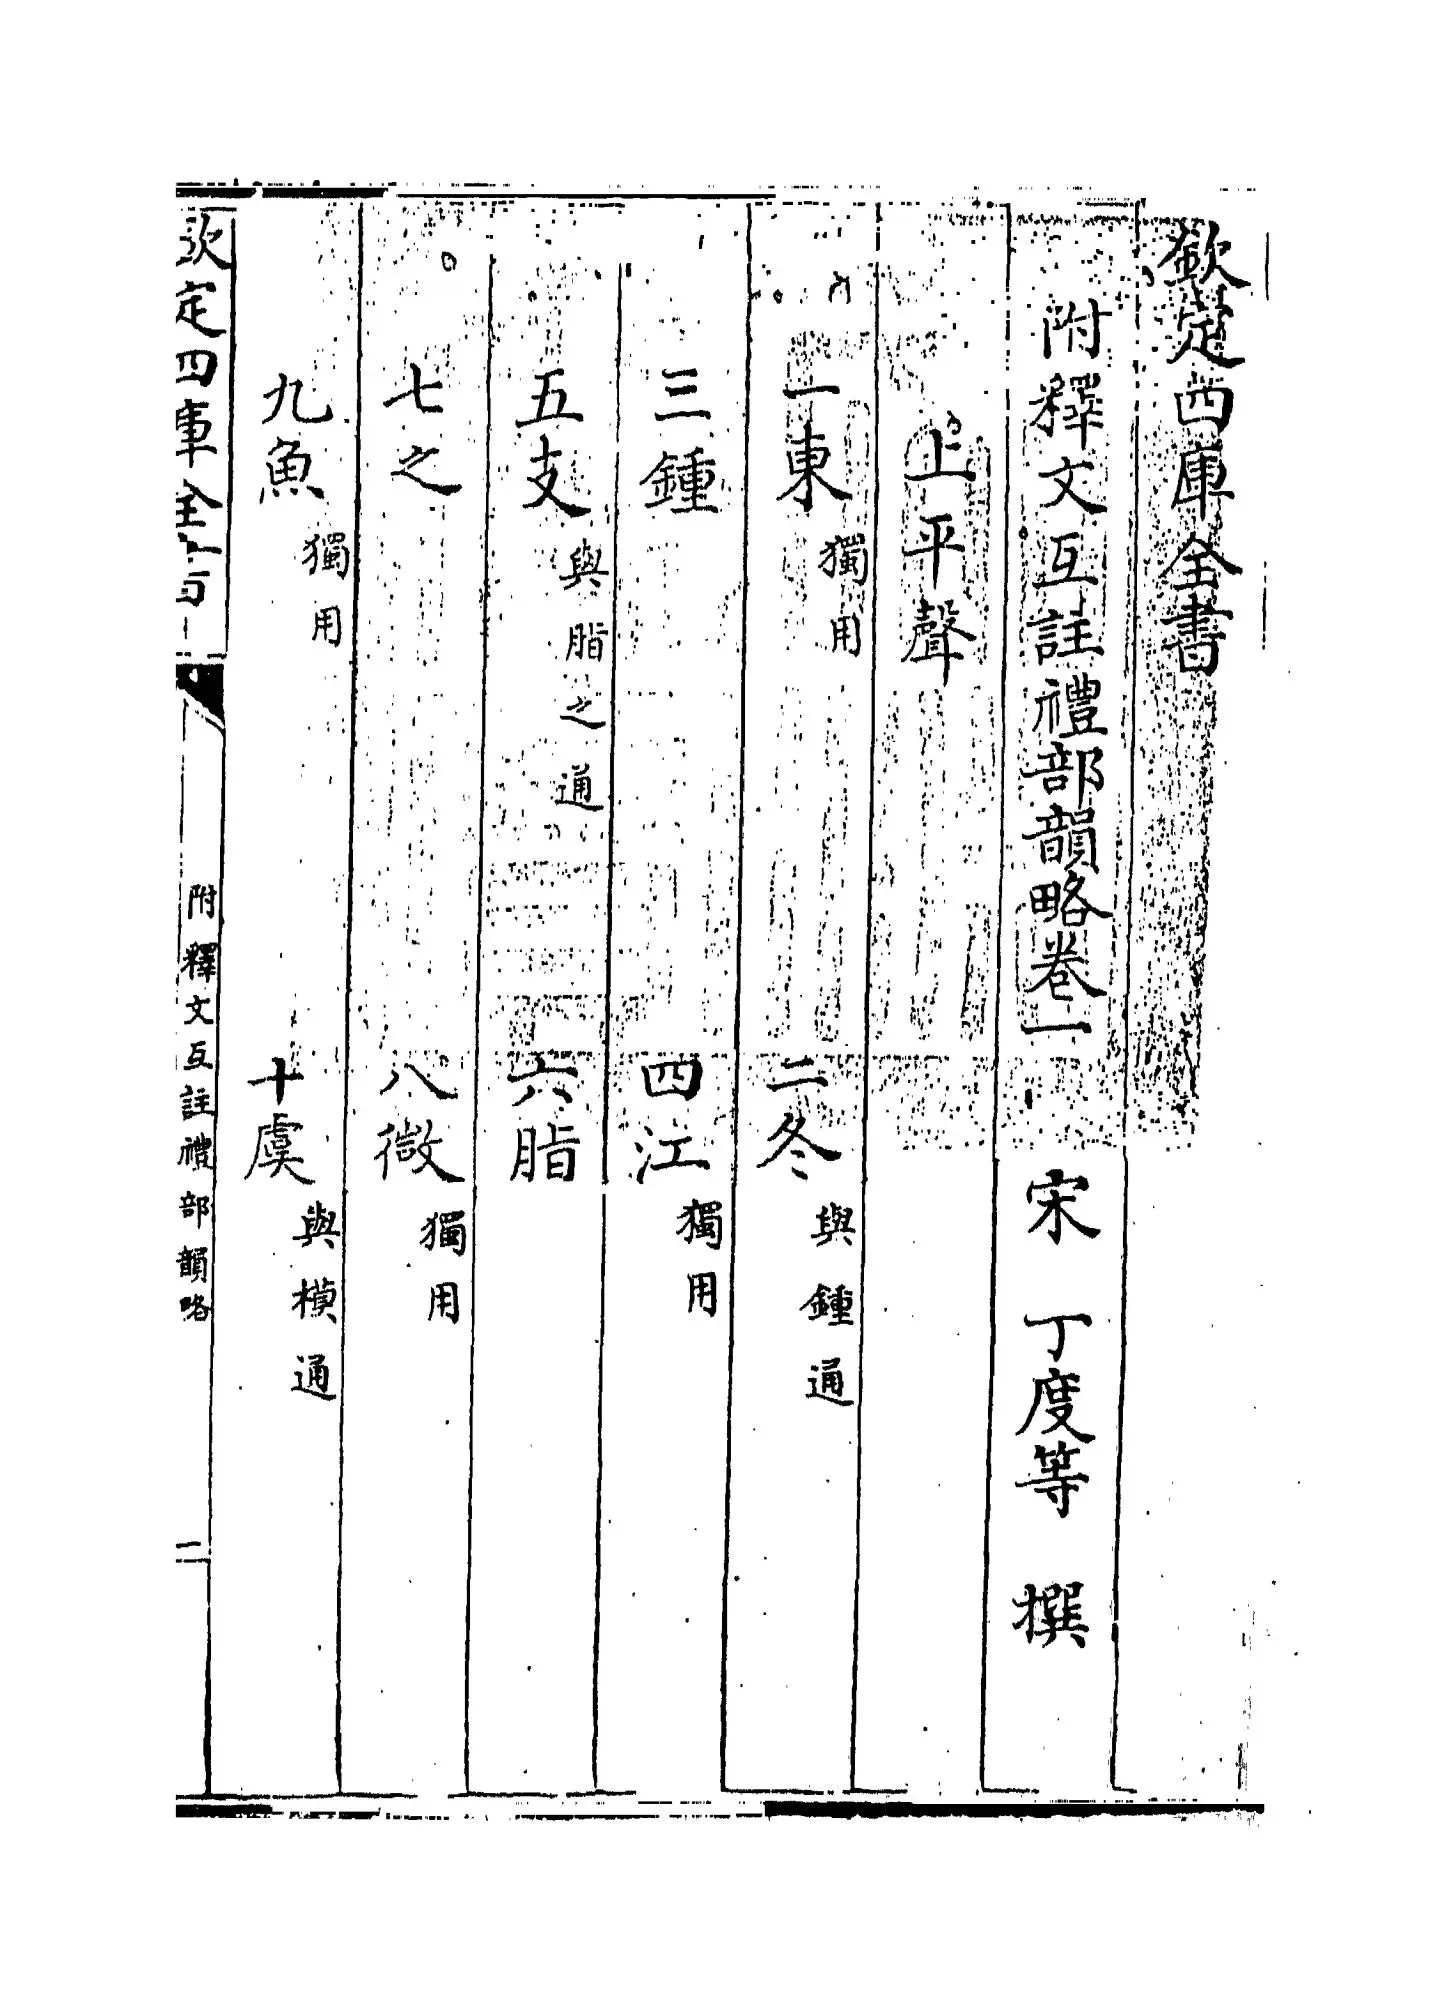 欽定四庫全書
附釋文互註禮部韻略卷一 宋 丁度等 撰
上平聲
一東獨用 二冬與鍾通
三鍾 四江獨用
五支與脂之通 六脂
七之 八微獨用
九魚獨用 十虞與模通
欽定四庫全書
附釋文互註禮部韻略